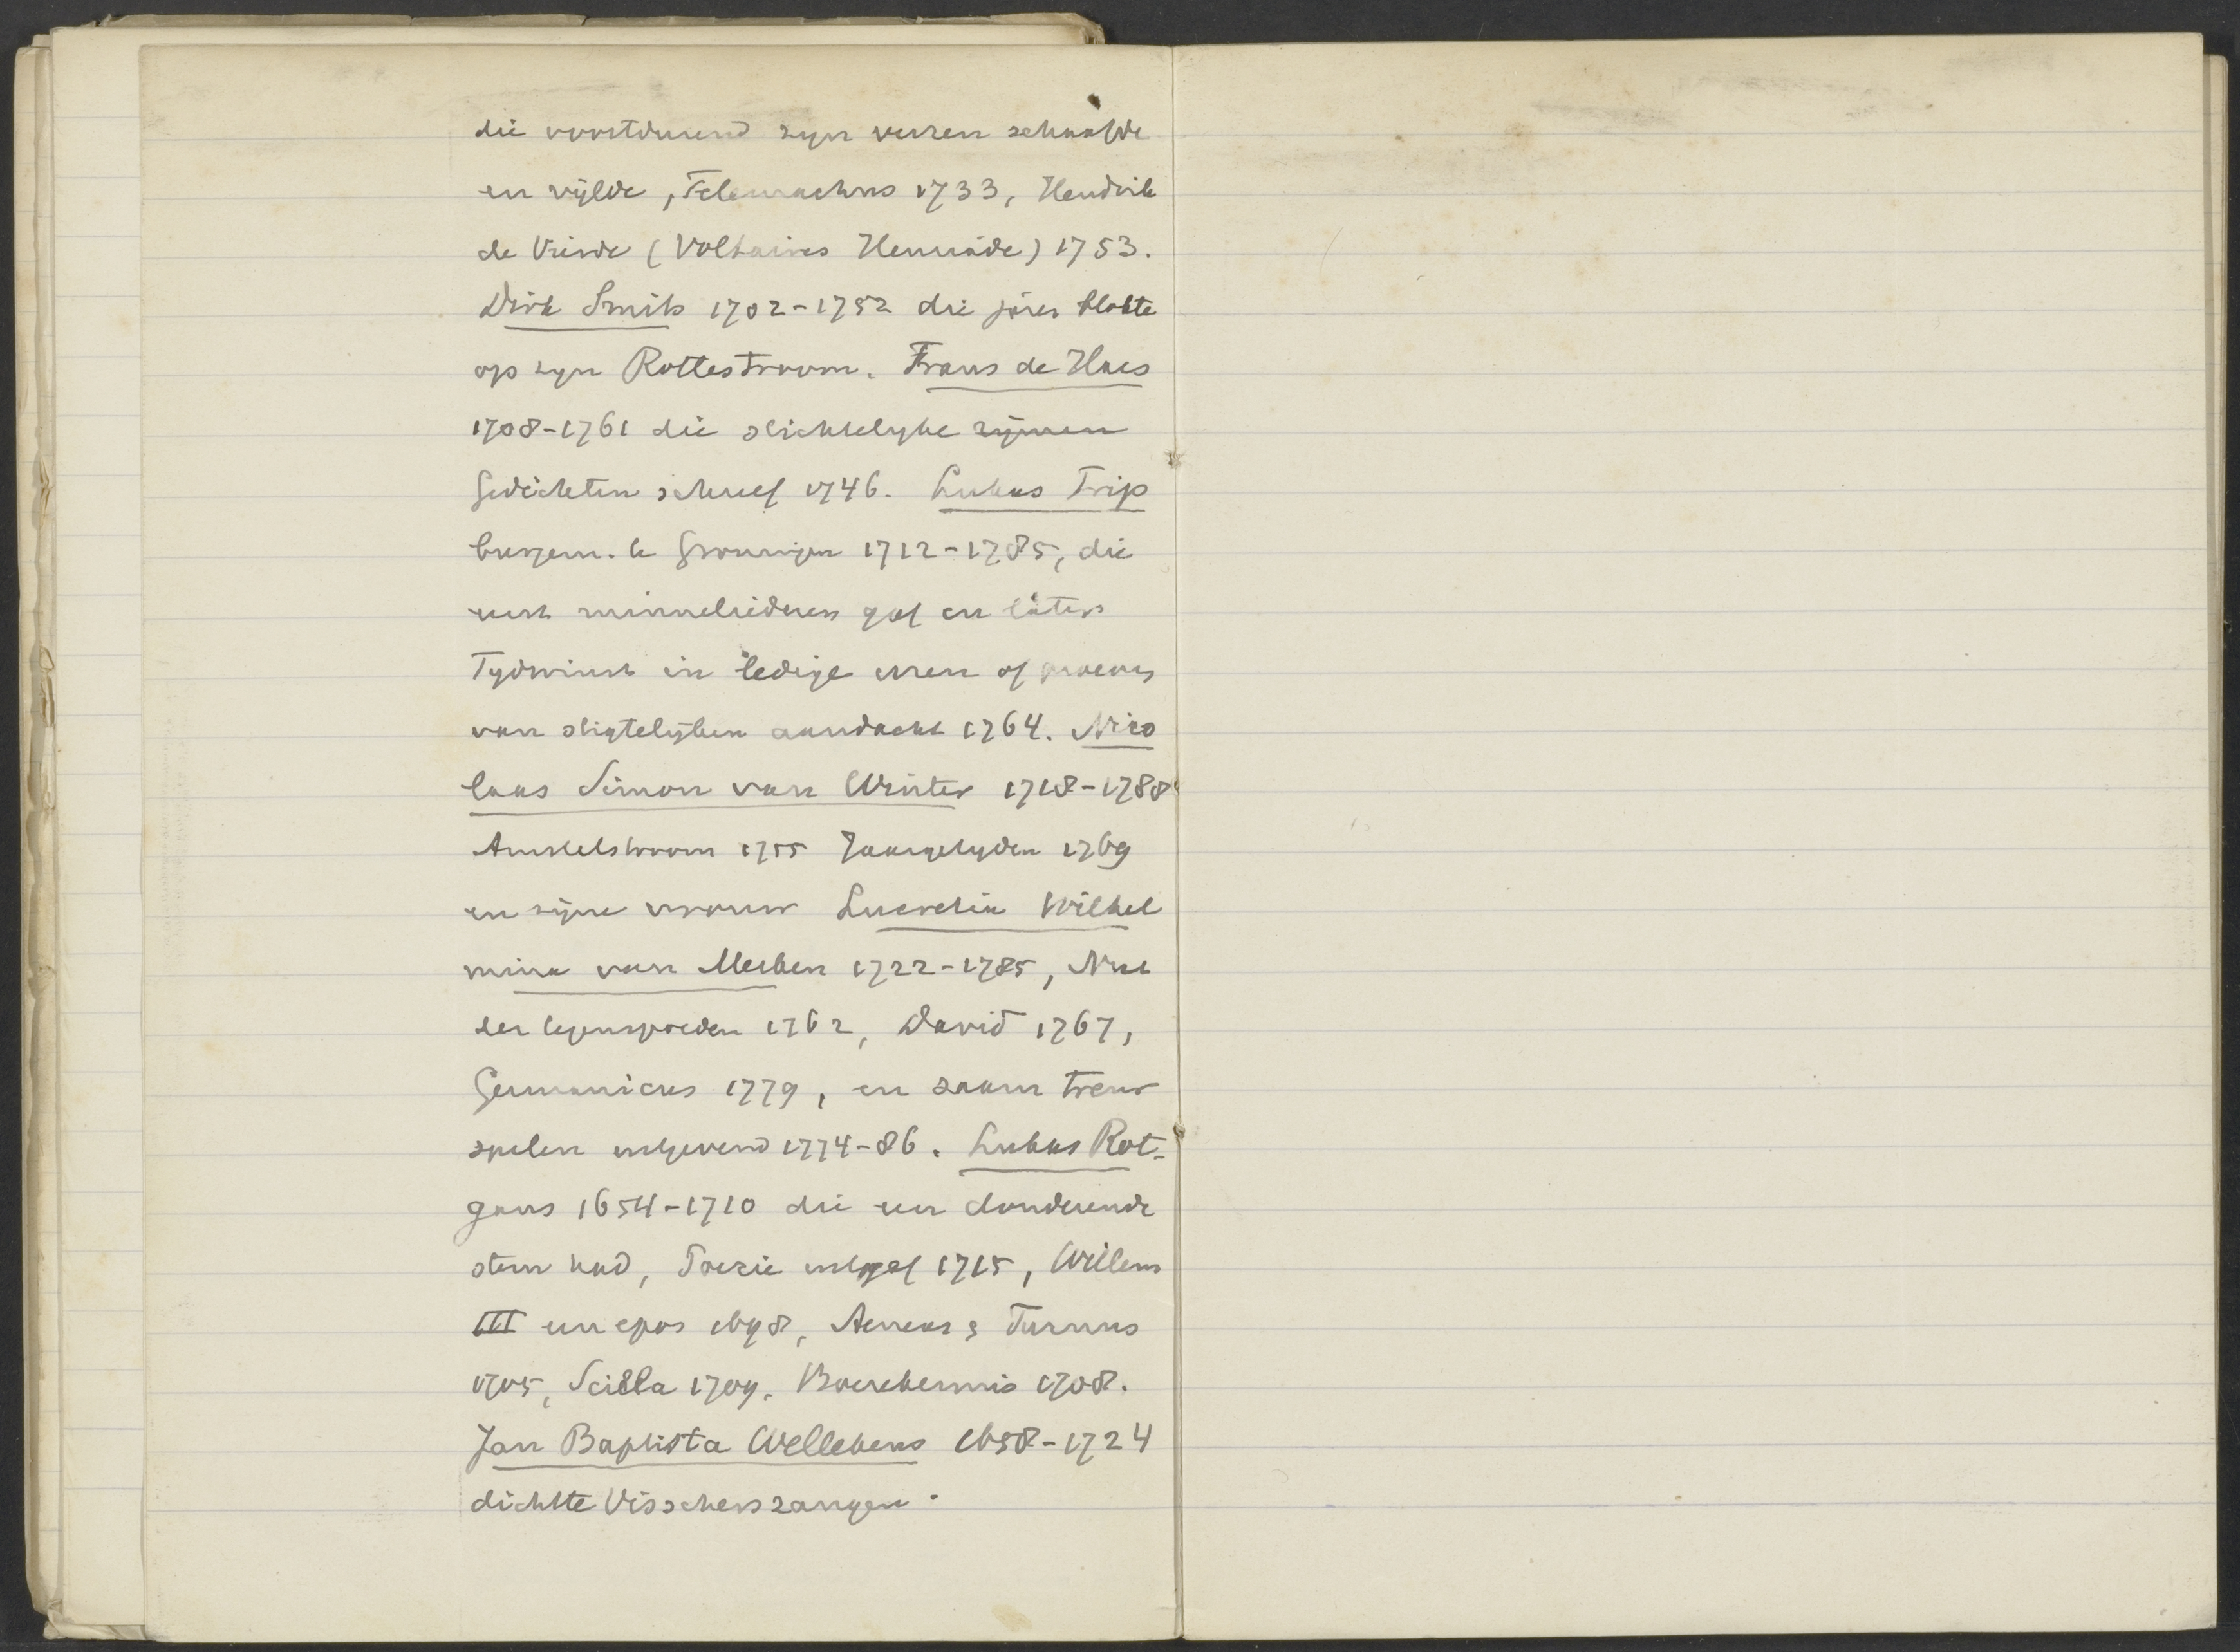 die voortdurend zyn verzen schaafde
en vylde, Telemachus 1733, Hendrik
de Vierde (Voltaires Henriade) 1753.
Dirk Smits 1702-1752 die jaren blokte
op zyn Rottestroom. Frans de Haes
1708-1761 die stichtelyke rijmen
Gedichten schreef 1746. Lukas Trip
burgem. te Groningen 1712-1785, die
eerst minneliederen gaf en later
Tydwinst in ledige uren of proeven
van stigtelyken aandacht 1764. Nico
laas Simon van Winter 1718-1788
Amstelstroom 1755 Jaargetyden 1769
en zijne vrouw Lucretia Wilhel
mina van Merken 1722-1785, Nut
der tegenspoeden 1762, David 1767,
Germanicus 1779, en zaam treur
spelen uitgevend 1774-86. Lukas Rot-
gans 1654-1710 die een donderende
stem had, Poezie uitgaf 1715, Willem
III een epos 1698, Aeneas & Turnus
1705, Scilla 1709, Boerekermis 1708.
Jan Baptista Wellekens 1658-1724
dichtte Visscherszangen.